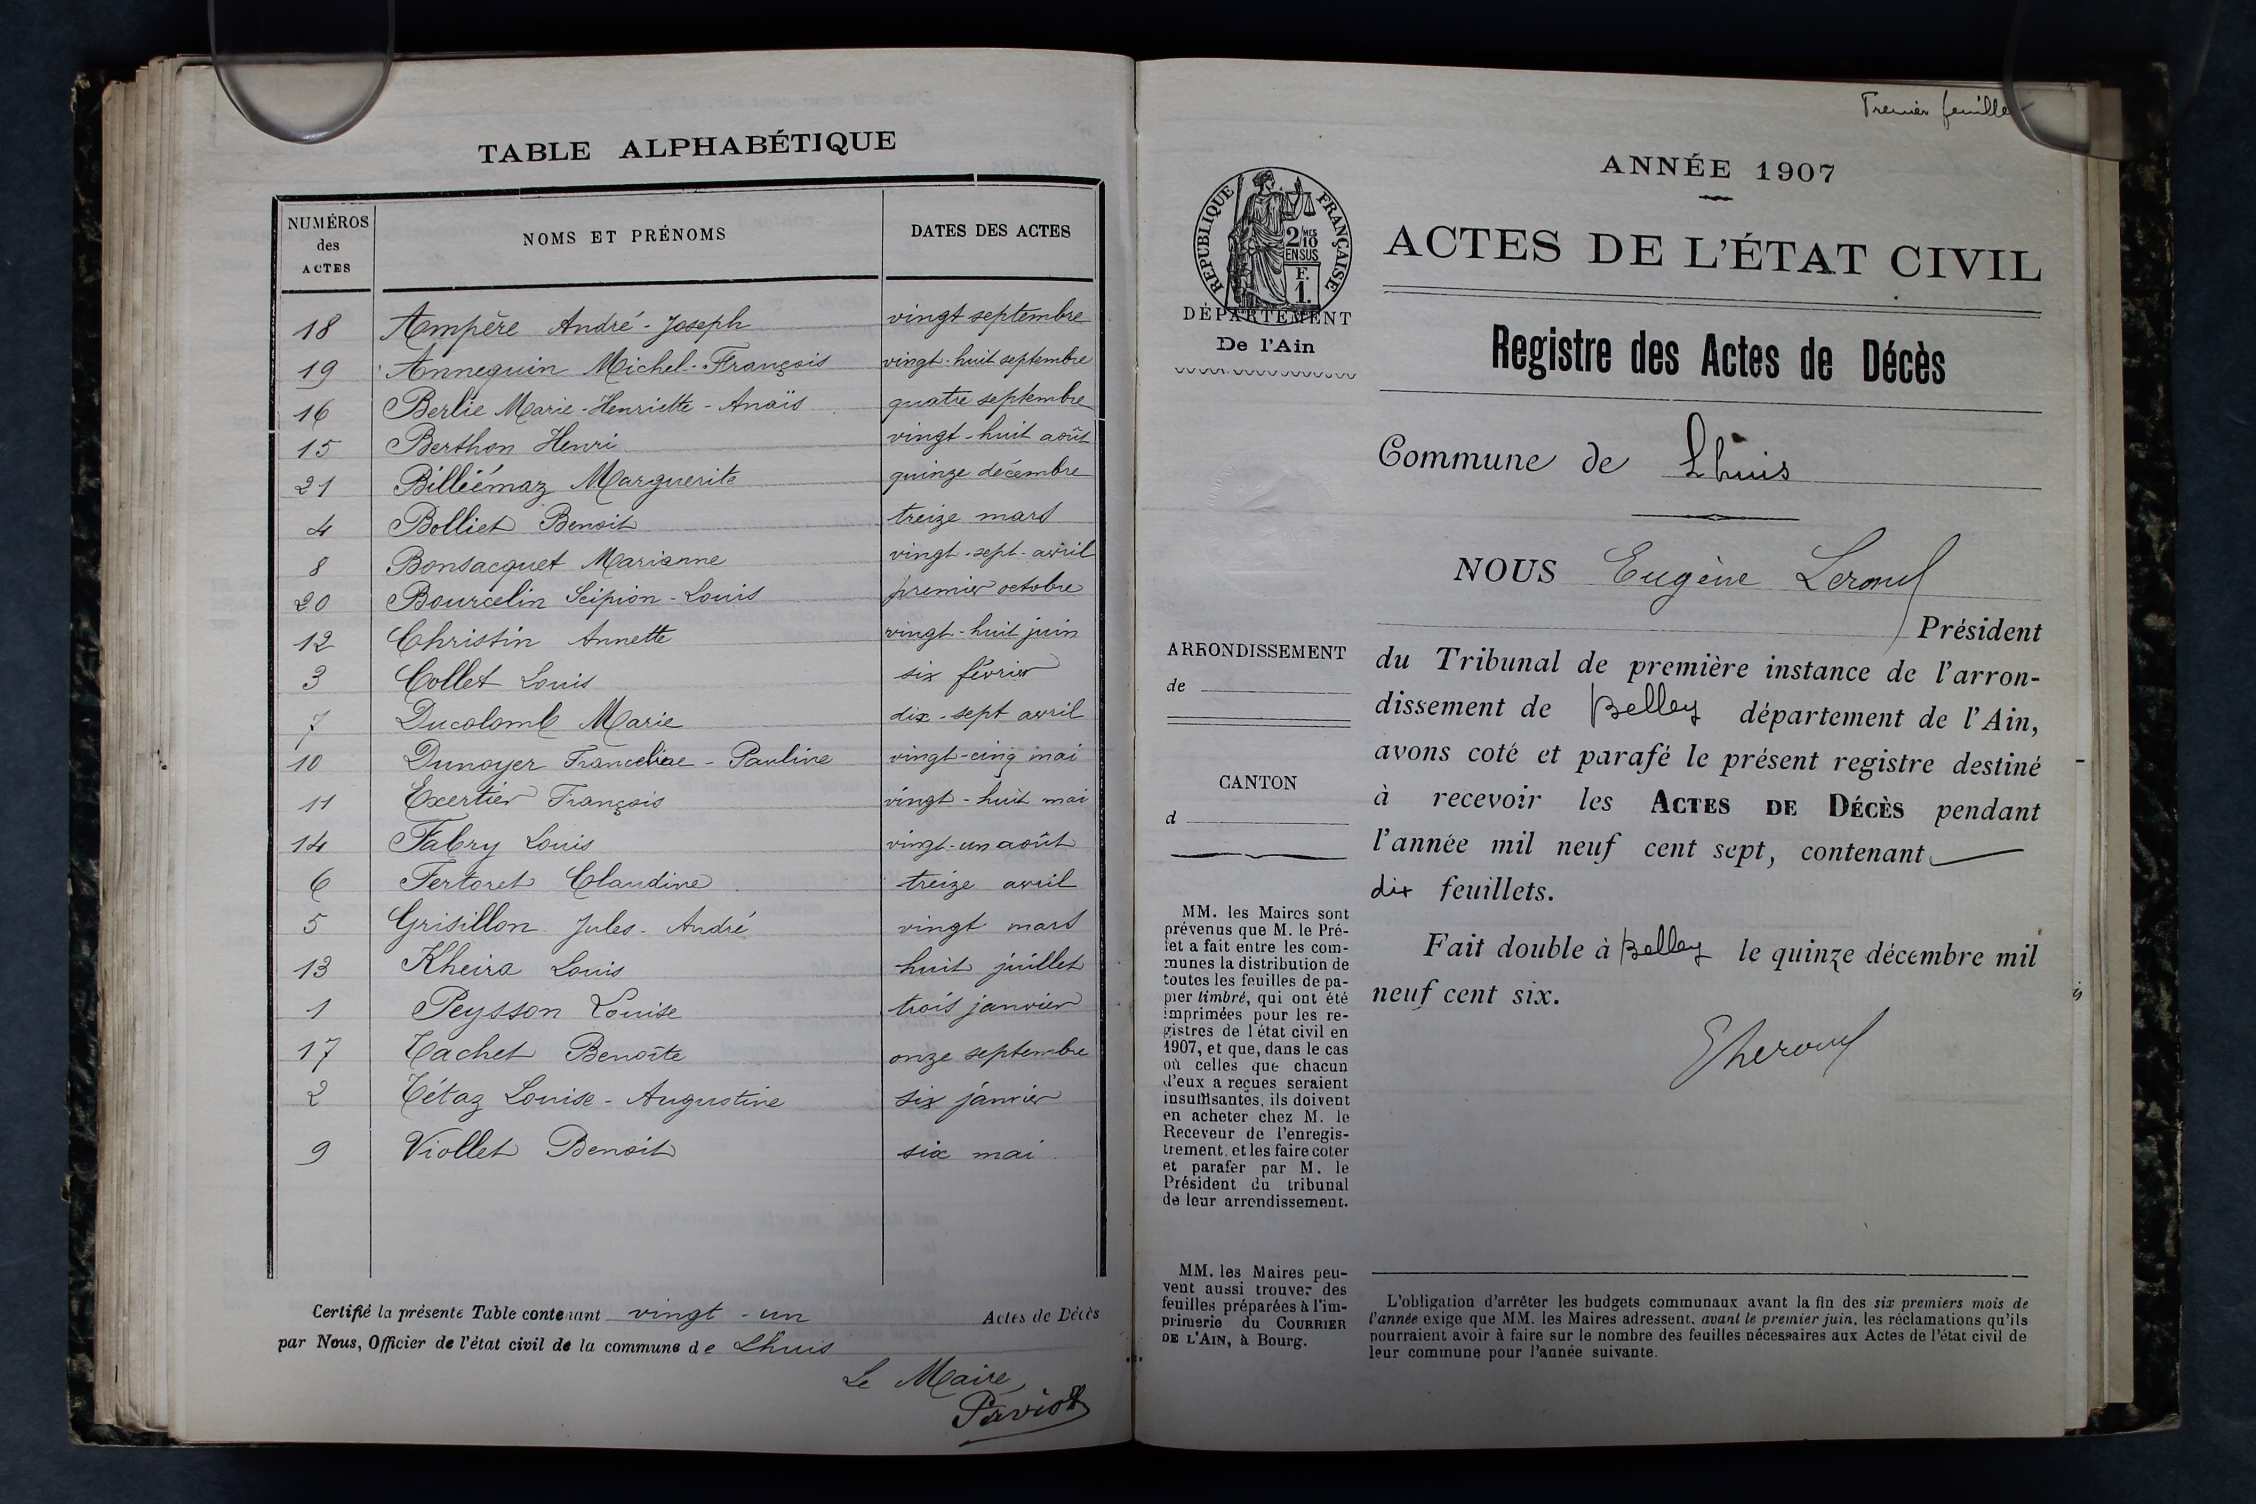 TABLE ALPHABÉTIQUE
NUMÉROS des ACTES NOMS ET PRÉNOMS DATES DES ACTES
18 Ampère André-Joseph vingt septembre
19 Annequin Michel-François vingt-huit septembre
16 Berlie Marie-Henriette-Anaïs quatre septembre
15 Berthon Henri vingt-huit août
21 Billiémaz Marguerite quinze décembre
4 Bolliet Benoit treize mars
8 Bonsacquet Marianne vingt-sept-avril
20 Bourcelin Scipion-Louis premier octobre
12 Christin Annette vingt-huit juin
3 Collet Louis six février
7 Ducolomb Marie dix-sept avril
10 Dunoyer Franceline-Pauline vingt-cinq mai
11 Exertier François vingt-huit mai
14 Fabry Louis vingt-un août
6 Fertoret Claudine treize avril
5 Grisillon Jules-André vingt mars
13 Kheira Louis huit juillet
1 Peysson Louise trois janvier
17 Tachet Benoîte onze septembre
2 Tétaz Louise-Augustine six janvier
9 Viollet Benoit six mai
Certifié la présente Table contenant vingt-un Actes de Décès
par Nous, Officier de l'état civil de la commune de Lhuis
Le Maire,
Premier feuillet
ANNÉE 1907
RÉPUBLIQUE FRANÇAISE
2/10 MES
EN SUS
F.
1.
DÉPARTEMENT
De l'Ain
ACTES DE L'ÉTAT CIVIL
Registre des Actes de Décès
Commune de Lhuis
NOUS Eugène
Président
du Tribunal de première instance de l'arron-
dissement de Belley département de l'Ain,
avons coté et parafé le présent registre destiné
à recevoir les ACTES DE DÉCÈS pendant
l'année mil neuf cent sept, contenant
dix feuillets.
Fait double à Belley le quinze décembre mil
neuf cent six.
ARRONDISSEMENT
de
CANTON
d
MM. les Maires sont
prévenus que M. le Pré-
fet a fait entre les com-
munes la distribution de
toutes les feuilles de pa-
pier timbré, qui ont été
imprimées pour les re-
gistres de l'état civil en
1907, et que, dans le cas
où celles que chacun
d'eux a reçues seraient
insuffisantes, ils doivent
en acheter chez M. le
Receveur de l'enregis-
trement, et les faire coter
et parafer par M. le
Président du tribunal
de leur arrondissement.
MM. les Maires peu-
vent aussi trouver des
feuilles préparées à l'im-
primerie du COURRIER
DE L'AIN, à Bourg.
L'obligation d'arrêter les budgets communaux avant la fin des six premiers mois de
l'année exige que MM. les Maires adressent, avant le premier juin, les réclamations qu'ils
pourraient avoir à faire sur le nombre des feuilles nécessaires aux Actes de l'état civil de
leur commune pour l'année suivante.